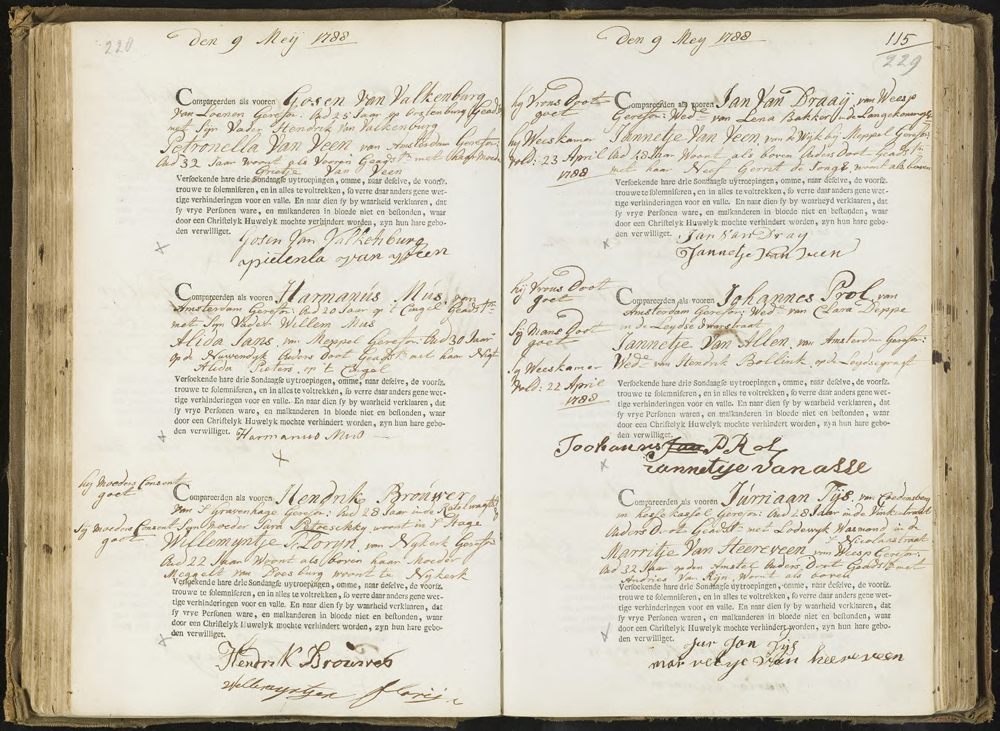 220
Den 9 Meij 1788
Compareerden als vooren Gosen Van Valkenburg
van Loenen Geref: Oud 25 Jaar op Oostenburg Geadst
met Syn Vader Hendrik van Valkenburg
Petronella Van Veen van Amsterdam Geref:
Oud 32 Jaar woont als Vooren Geadst: met haar Moeder
Grietje Van Veen
Versoekende hare drie Sondaagse uytroepingen, omme, naar deselve, de voorsz.
trouwe te solemniseren, en in alles te voltrekken, so verre daar anders gene wet-
tige verhinderingen voor en valle. En naar dien sy by waarheid verklaren, dat
sy vrye Personen ware, en malkanderen in bloede niet en bestonden, waar
door een Christelyk Huwelyk mochte verhindert worden, zyn hun hare gebo-
den verwilliget.
Gosen Van Valkenburg
x
van Veen
Compareerden als vooren Harmanus Mus, van
Amsterdam Geref: Oud 20 Jaar op 't Cingel Geadst:
met Syn Vader Willem Mus
Alida Jans, van Meppel Geref: Oud 30 Jaar
op de Nuwendyk Ouders Doot Geadst met haar Nigt
Alida Pieters, op 't Cingel
Versoekende hare drie Sondaagse uytroepingen, omme, naar deselve, de voorsz.
trouwe te solemniseren, en in alles te voltrekken, so verre daar anders gene wet-
tige verhinderingen voor en valle. En naar dien sy by waarheid verklaren, dat
sy vrye Personen ware, en malkanderen in bloede niet en bestonden, waar
door een Christelyk Huwelyk mochte verhindert worden, zyn hun hare gebo-
den verwilliget. Harmanus Mus
x
+
hy Moeders Consent
goet
Compareerden als vooren Hendrik Brouwer
Van S'gravenhage Geref: Oud 28 Jaar in de
Sy Moeders Consent
goet
Syn moeder Sara woont in S Hage
Willemyntje F: Loryn, van Nykerk Geref:
Oud 22 Jaar Woont als boven haar Moeder
Meggelt van Does burg woont te Nykerk
Versoekende hare drie Sondaagse uytroepingen, omme, naar deselve, de voorsz.
trouwe te solemniseren, en in alles te voltrekken, so verre daar anders gene wet-
tige verhinderingen voor en valle. En naar dien sy by waarheid verklaren, dat
sy vrye Personen ware, en malkanderen in bloede niet en bestonden, waar
door een Christelyk Huwelyk mochte verhindert worden, zyn hun hare gebo-
den verwilliget.
x
Hendrik Brouwer
Den 9 Mey 1788
115
229
hy Vrous Doot
goet
Compareerden als vooren Jan Van Draaij, van Weesp
Geref: Wed: van Lena Bakker in de
hy Weeskamer
Vold: 23 April
1788
Jannetje Van Veen, van d Wyk by Meppel Geref:
Oud 48 Jaar Woont als boven Ouders Doot Geadst
met haar Neef Gerrit de woont als boven
Versoekende hare drie Sondaagse uytroepingen, omme, naar deselve, de voorsz.
trouwe te solemniseren, en in alles te voltrekken, so verre daar anders gene wet-
tige verhinderingen voor en valle. En naar dien sy by waarheyd verklaren, dat
sy vrye Personen ware, en malkanderen in bloede niet en bestonden, waar
door een Christelyk Huwelyk mochte verhindert worden, zyn hun hare gebo-
den verwilliget. Jan Van Dray
x
Jannetje Van Veen
hy Vrous Doot
goet
Compareerden als vooren Johannes Prol, van
Amsterdam Geref: Wed: van Clara Deppe
in de Leydse dwarsstraat
Sy Mans Doot
goet
Jannetje Van Allen, van Amsterdam Geref:
Wed: van Hendrik Bollink, op de Leydsegraft
Sy Weeskamer
Vold: 22 April
1788
Versoekende hare drie Sondaagse uytroepingen, omme, naar deselve, de voorsz.
trouwe te solemniseren, en in alles te voltrekken, so verre daar anders gene wet-
tige verhinderingen voor en valle. En naar dien sy by waarheid verklaren, dat
sy vrye Personen ware, en malkanderen in bloede niet en bestonden, waar
door een Christelyk Huwelyk mochte verhindert worden, zyn hun hare gebo-
den verwilliget.
Joohannes PRol
x
Jannetje van alle
Compareerden als vooren Jurriaan Tijs, van
in hesse kassel Geref: Oud 48 Jaar in de Vinkestraat
Ouders Doot Geadst: met Lodewyk Wasmond in de
S Nicolaasstraat
Marritje Van Heereveen, van Weesp Geref:
Oud 32 Jaar op den Amstel Ouders Doot Geadst met
Andries Van Ryn, Woont als boven
Versoekende hare drie Sondaagse uytroepingen, omme, naar deselve, de voorsz.
trouwe te solemniseren, en in alles te voltrekken, so verre daar anders gene wet-
tige verhinderingen voor en valle. En naar dien sy by waarheid verklaren, dat
sy vrye Personen ware, en malkanderen in bloede niet en bestonden, waar
door een Christelyk Huwelyk mochte verhindert worden, zyn hun hare gebo-
den verwilliget.
x
Jur Jan Tijs
van heereveen